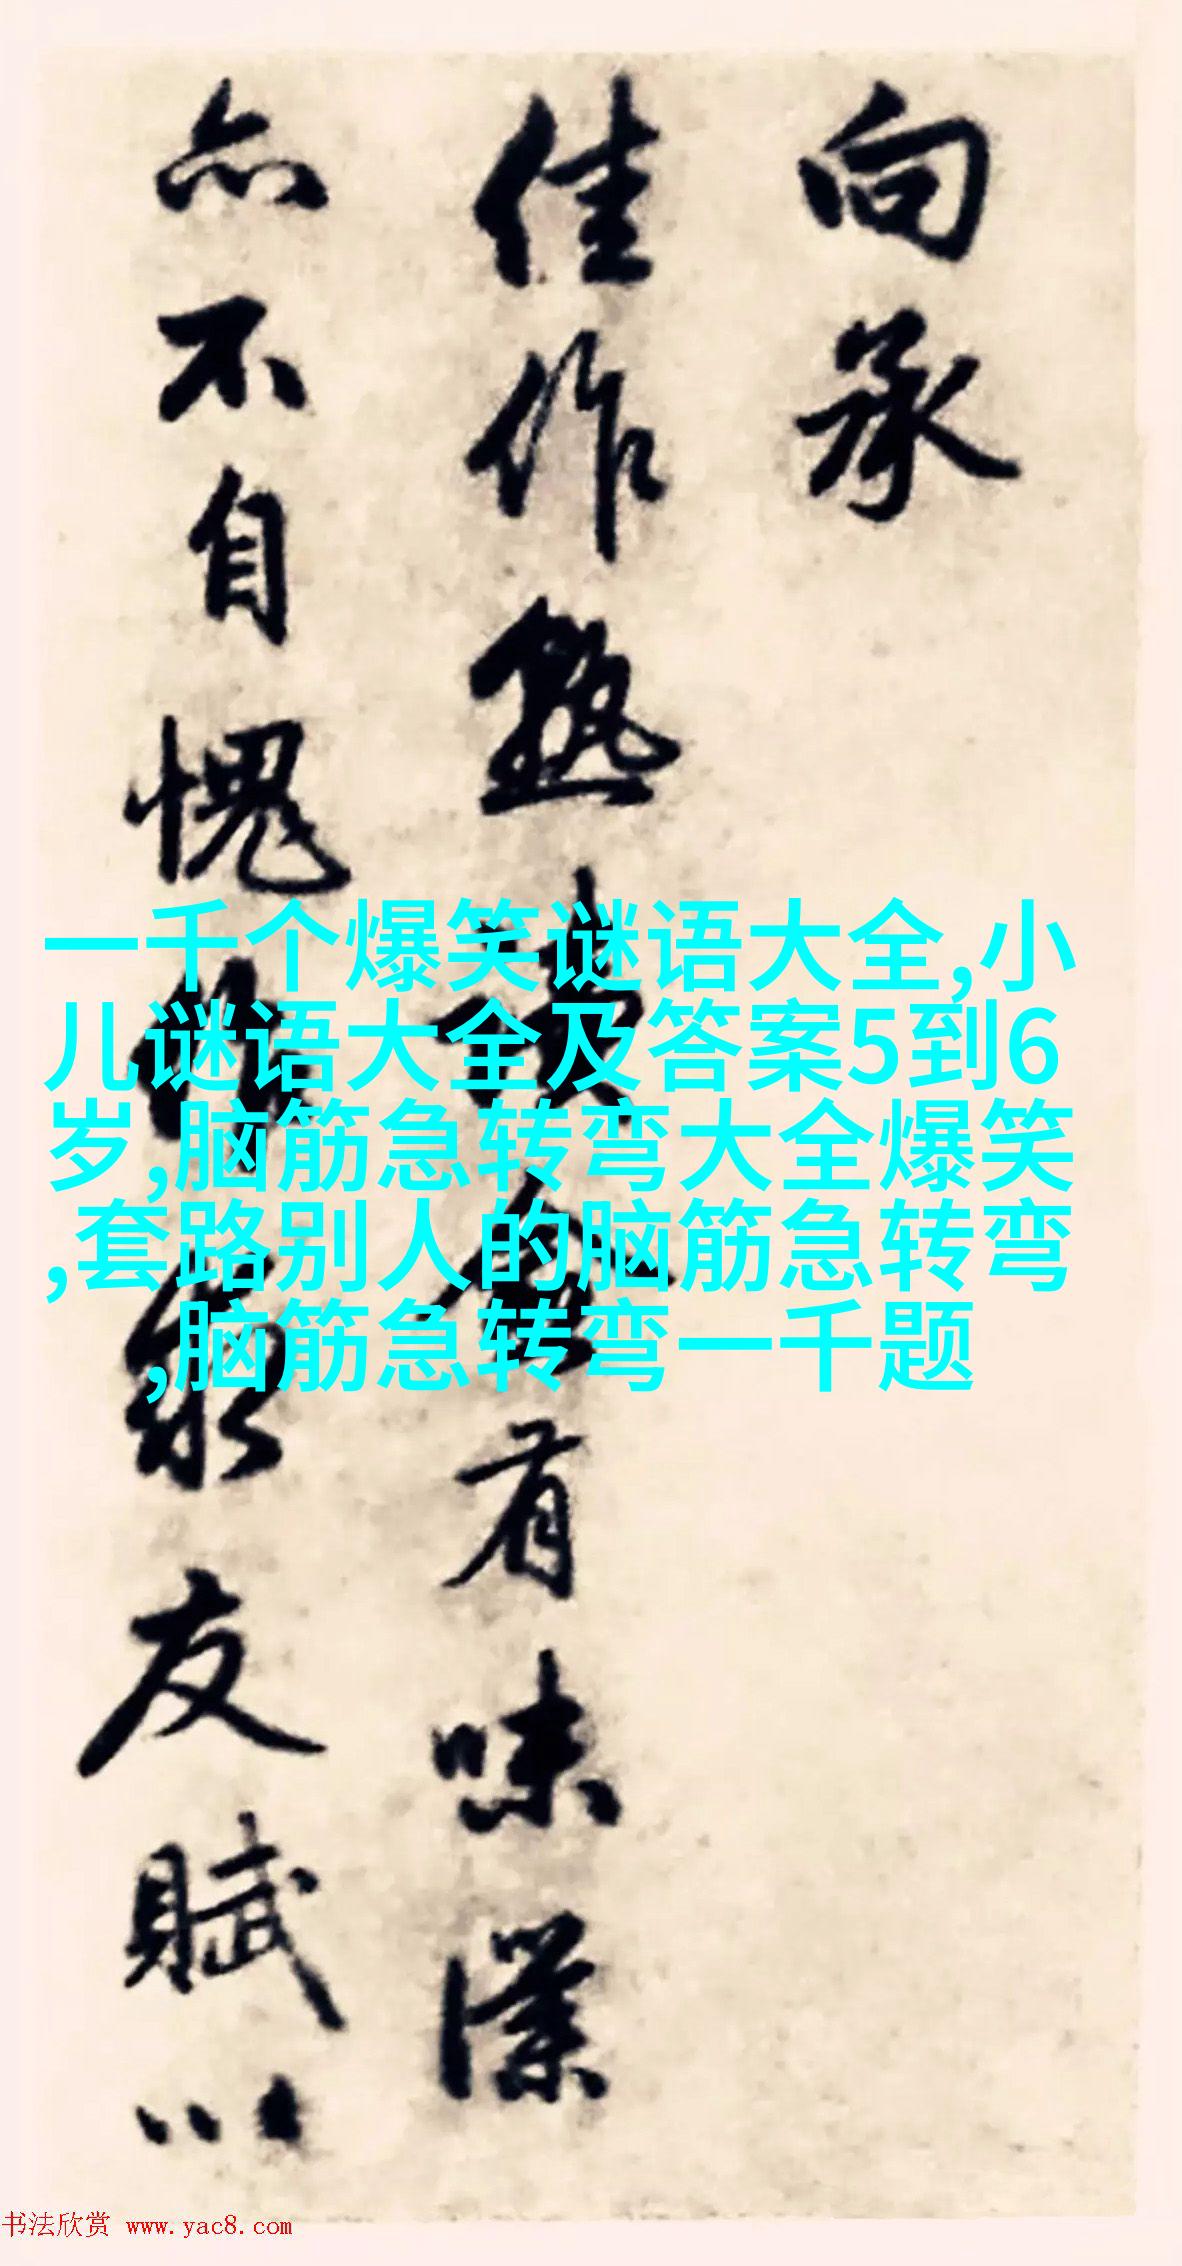 向承
佳作熟有味
亦不自愧友賦以
一千个爆笑谜语大全,小
儿谜语大全及答案5到6
岁,脑筋急转弯大全爆笑
,套路别人的脑筋急转弯
,脑筋急转弯一千题
书法欣赏 www.yac8.com